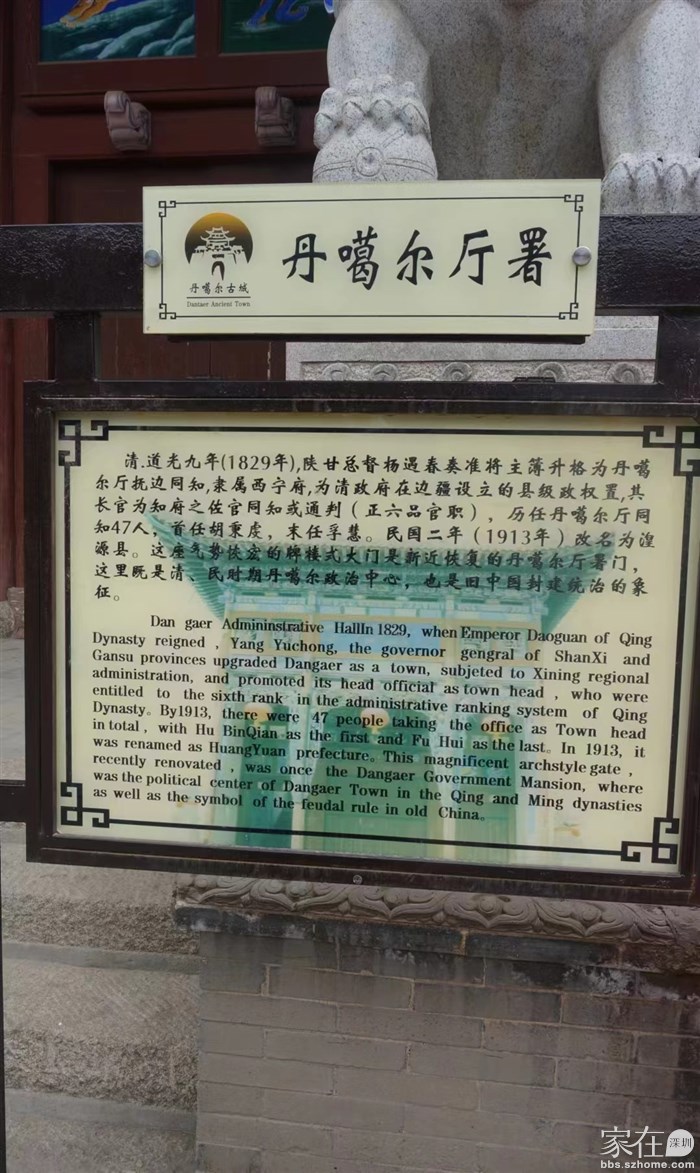 丹噶尔厅署
丹噶尔古城
Dantaer Ancient Town
清.道光九年(1829年),陕甘总督杨遇春奏准将主簿升格为丹噶
尔厅抚边同知,隶属西宁府,为清政府在边疆设立的县级政权置,其
长官为知府之佐官同知或通判（正六品官职），历任丹噶尔厅同
知47人，首任胡秉虔，末任孚慧。民国二年（1913年）改名为湟
源县。这座气势恢宏的牌楼式大门是新近恢复的丹噶尔厅署门，
这里既是清、民时期丹噶尔政治中心，也是旧中国封建统治的象
征。
Dan gaer Admininstrative HallIn 1829, when Emperor Daoguan of Qing
Dynasty reigned , Yang Yuchong, the governor gengral of ShanXi and
Gansu provinces upgraded Dangaer as a town, subjeted to Xining regional
administration, and promoted its head official as town head , who were
entitled to the sixth rank in the administrative ranking system of Qing
Dynasty. By1913, there were 47 people taking the office as Town head
in total, with Hu BinQian as the first and Fu Hui as the last. In 1913, it
was renamed as HuangYuan prefecture. This magnificent archstyle gate ,
recently renovated , was once the Dangaer Government Mansion, where
was the political center of Dangaer Town in the Qing and Ming dynasties
as well as the symbol of the feudal rule in old China。
家在深圳
bbs.szhome.com